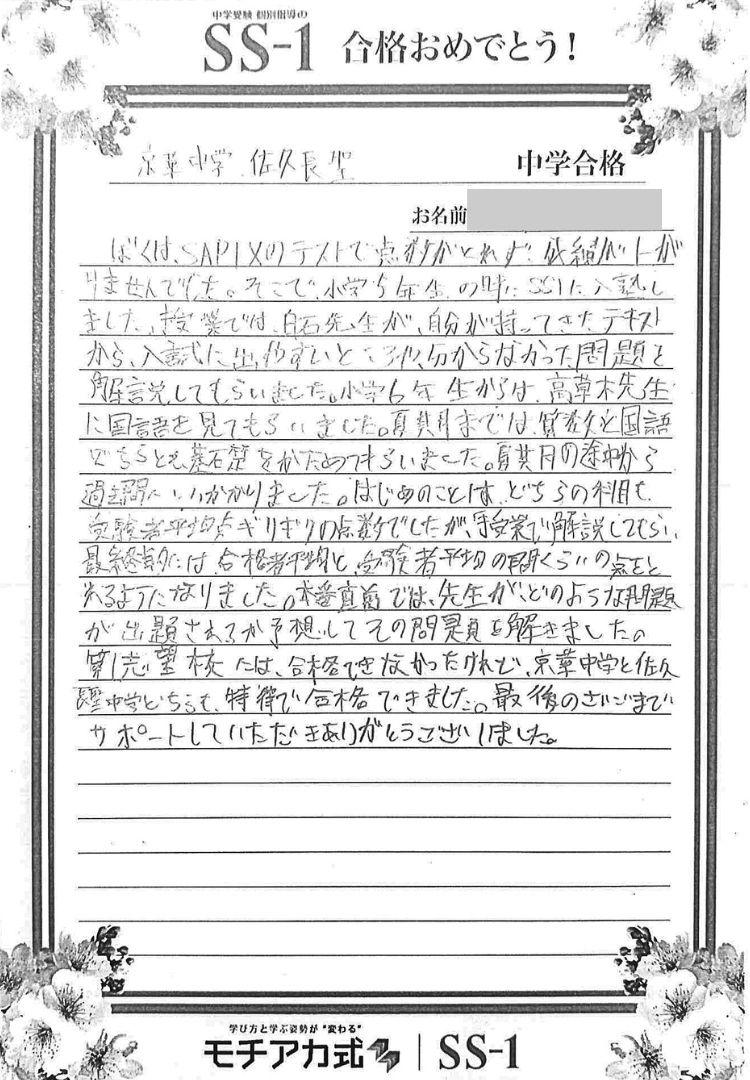 中学受験 個別指導の
SS-1 合格おめでとう!
京華中学 佐久長聖 中学合格
お名前
ぼくは、SAPIXのテストで点数がとれず、成績が上が
りませんでした。そこで、小学5年生の時にSS1に入塾し
ました。授業では、白石先生が、自分が持ってきたテキスト
から、入試に出やすいところや、分からなかった問題を
解説してもらいました。小学6年生からは、高草木先生
に国語を見てもらいました。夏期までは、算数と国語
どちらとも基石楚をかためてもらいました。夏期の途中から
過去問にいかかりました。はじめのことは、どちらの科目も
受験者平均点ギリギリの点数でしたが、授業で解説してもらい、
最終期には、合格者平均と、受験者平均の間くらいの点をと
れるようになりました。本番直前では、先生が、どのような問題
が出題されるか予想してその問題を解きました。
第1志望校には、合格できなかったけれど、京華中学と佐久
長聖中学どちらも、特待で合格できました。最後のさいごまで
サポートしていただきありがとうございました。
学び方と学ぶ姿勢が"変わる"
モチアカ式 | SS-1